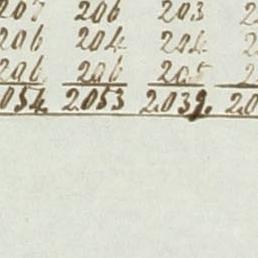 207 206 203 2
206 204 204 2
206 206 205 2
054 2053 2039. 20